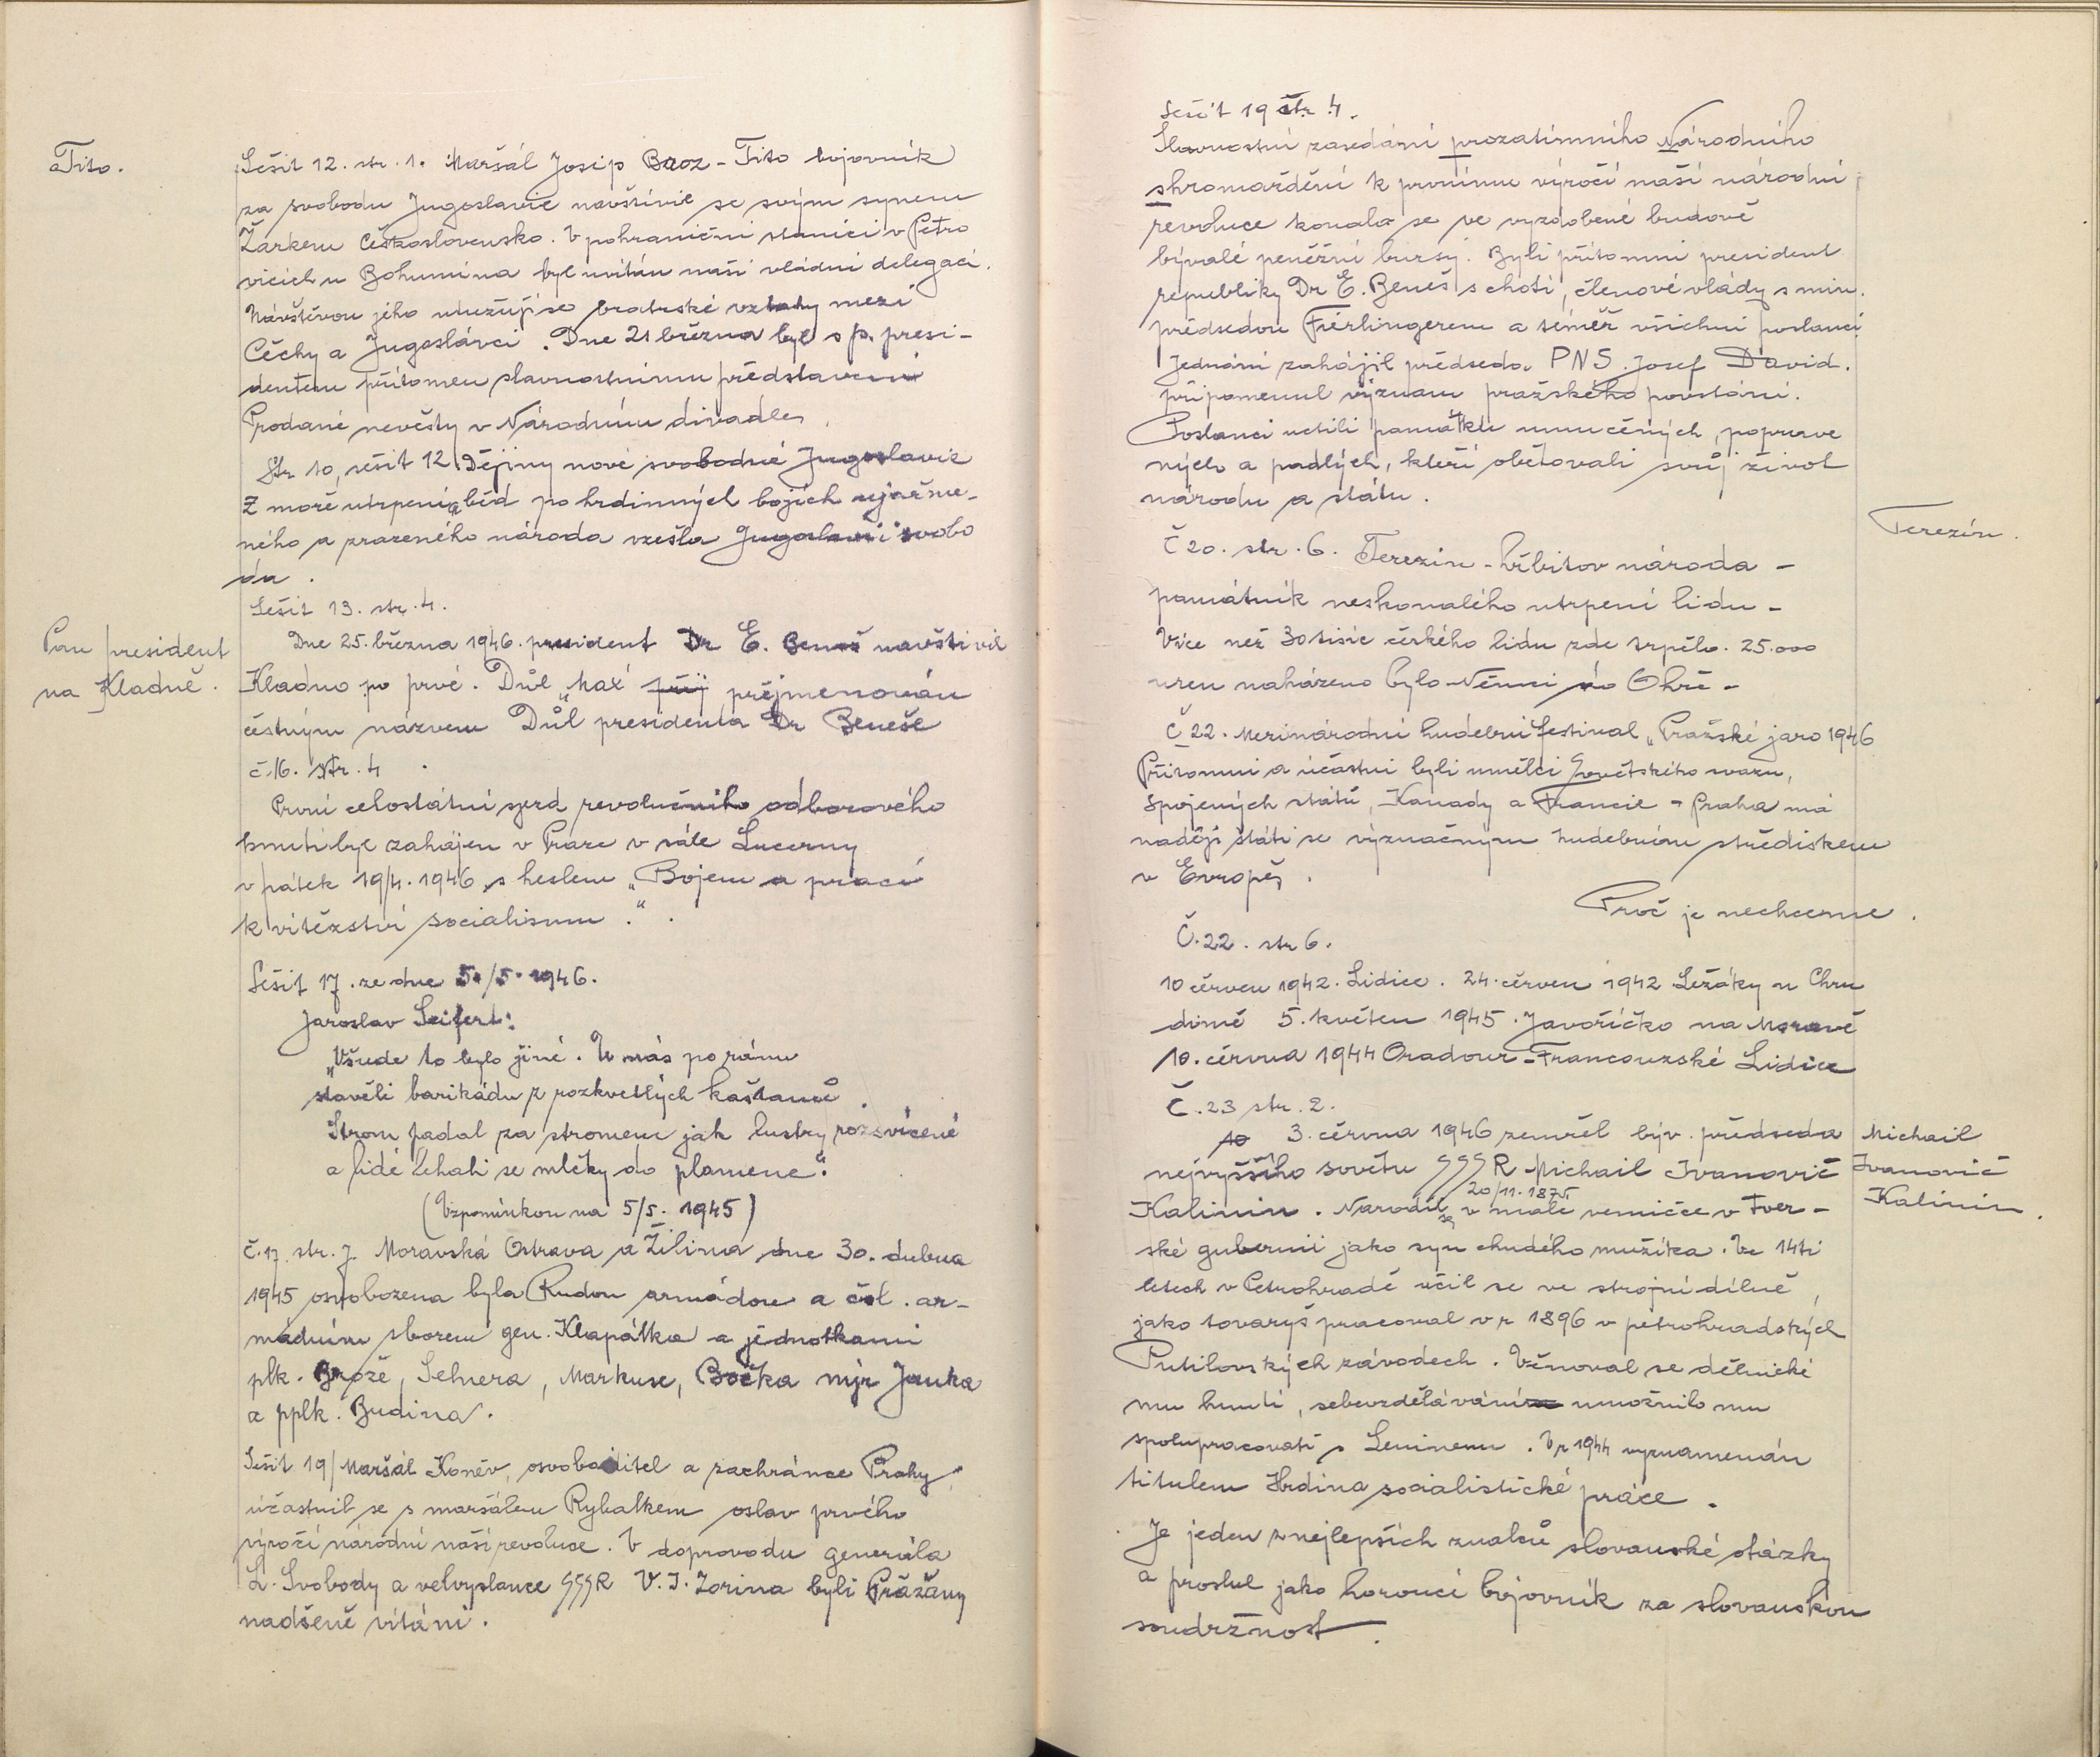 Tito.
Sešit 12. str. 1. Maršál Josip Broz - Tito bojovník
za svobodu Jugoslavie navštívil se svým synem
Žarkem Československo. V pohraniční stanici v Petro
vicích u Bohumína byl uvítán naší vládní delegací.
Návštěvou jeho utužují se bratrské vztahy mezi
Čechy a Jugoslávci. Dne 21 března byl s p. presi-
dentem přítomen slavnostnímu představení
Prodané nevěsty v Národním divadle.
Str 10, sešit 12. Dějiny nové svobodné Jugoslavie
Z moře utrpení a běd po hrdinných bojích ujařme-
ného a zrazeného národa vzešla Jugoslavii svobo
da.
Sešit 13. str. 4.
Pan president
na Kladně.
Dne 25. března 1946. president Dr E. Beneš navštívil
Kladno po prvé. Důl „Max přejmenován
čestným názvem Důl presidenta Dr Beneše
č. 16. str. 4.
První celostátní sjezd revolučního odborového
hnutí byl zahájen v Praze v sále Lucerny
v pátek 19/4. 1946 s heslem „Bojem a prací
k vítězství socialismu."
Sešit 17. ze dne 5./5. 1946.
Jaroslav Seifert:
„Všude to bylo jiné. U nás po ránu
stavěli barikádu z rozkvetlých kaštanů.
Strom padal za stromem jak lustry rozsvícené
a lidé lehali se mlčky do plamene".
(Vzpomínkou na 5/5. 1945)
Č. 17. str. 7. Moravská Ostrava a Žilina dne 30. dubna
1945 osvobozena byla Rudou armádou a čsl. ar-
mádním sborem gen. Klapálka a jednotkami
plk. Brože, Selnera, Markuse, Bočka mjr Janka
a pplk. Budina.
Sešit 19/ Maršál Koněv, osvoboditel a zachránce Prahy,
účastnil se s maršálem Rybalkem oslav prvého
výročí národní naší revoluce. V doprovodu generála
L. Svobody a velvyslance SSSR V. I. Zorina byli Pražany
nadšeně vítáni.
Sešit 19 str. 4.
Slavnostní zasedání prozatímního Národního
shromáždění k prvnímu výročí naší národní
revoluce konala se ve vyzdobené budově
bývalé peněžní bursy. Byli přítomni president
republiky Dr E. Beneš s chotí, členové vlády s min.
předsedou Fierlingerem a téměř všichni poslanci.
Jednání zahájil předseda PNS. Josef David.
připomenul význam pražského povstání.
Poslanci uctili památku umučených, poprave
ných a padlých, kteří obětovali svůj život
národu a státu.
Terezín.
Č 20. str. 6. Terezín - hřbitov národa -
památník neskonalého utrpení lidu -
Více než 30 tisíc českého lidu zde trpělo. 25.000
uren naházeno bylo Němci do Ohře -
Č 22. Mezinárodní hudební festival „Pražské jaro 1946
Přítomni a účastni byli umělci Sovětského svazu,
Spojených států, Kanady a Francie - Praha má
naději státi se význačným hudebním střediskem
v Evropě.
Proč je nechceme.
Č. 22. str 6.
10 červen 1942. Lidice. 24. červen 1942 Ležáky u Chru
dimě 5. květen 1945. Javoříčko na Moravě
10. června 1944 Oradour - Francouzské Lidice
Č. 23 str. 2.
10 3. června 1946 zemřel býv. předseda
nejvyššího sovětu SSSR Michail Ivanovič
Michail
Ivanovič
Kalinin.
20/11. 1875
Kalinin. Narodil se v malé vesničce v Tver-
ské gubernii jako syn chudého mužíka. Ve 14ti
letech v Petrohradě učil se ve strojní dílně,
jako tovaryš pracoval v r 1896 v petrohradských
Putilovských závodech. Věnoval se dělnické
mu hnutí, sebevzdělávání umožnilo mu
spolupracovati s Leninem. V r 1944 vyznamenán
titulem Hrdina socialistické práce.
Je jeden z nejlepších znalců slovanské otázky
a proslul jako horoucí bojovník za slovanskou
soudržnost.